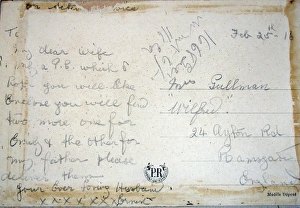 On Active Service
Feb 25th 16
To
my dear wife
a P.C. which I
hope you will like
Enclose you will find
two more one for
Emily & the other for
my father please
deliver them
your Ever loving Husband
x x x x x x x Ernest
Mrs Pullman
"Wilfred"
24 Ayton Rd
Ramsgate
England
PR